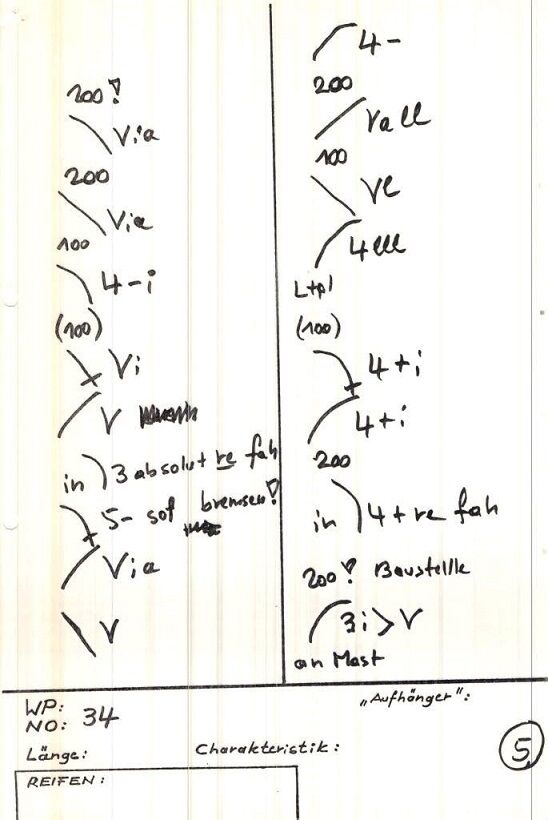 200!
Via
200
Via
100
4-i
(100)
Vi
V
in 3 absolut re fah
5- sof bremsen!
Via
V
4-
200
Vall
100
Vl
4lll
Ltpl
(100)
4+i
4+i
200
in 4+re fah
200! Baustellle
3i>V
an Mast
WP:
NO: 34
„Aufhänger":
Länge:
Charakteristik:
5
REIFEN: